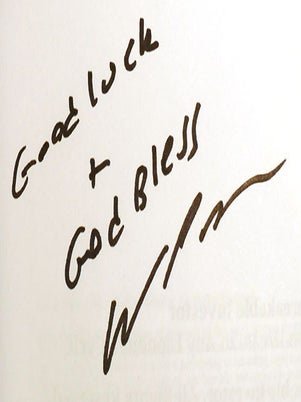 Good luck
+
God Bless